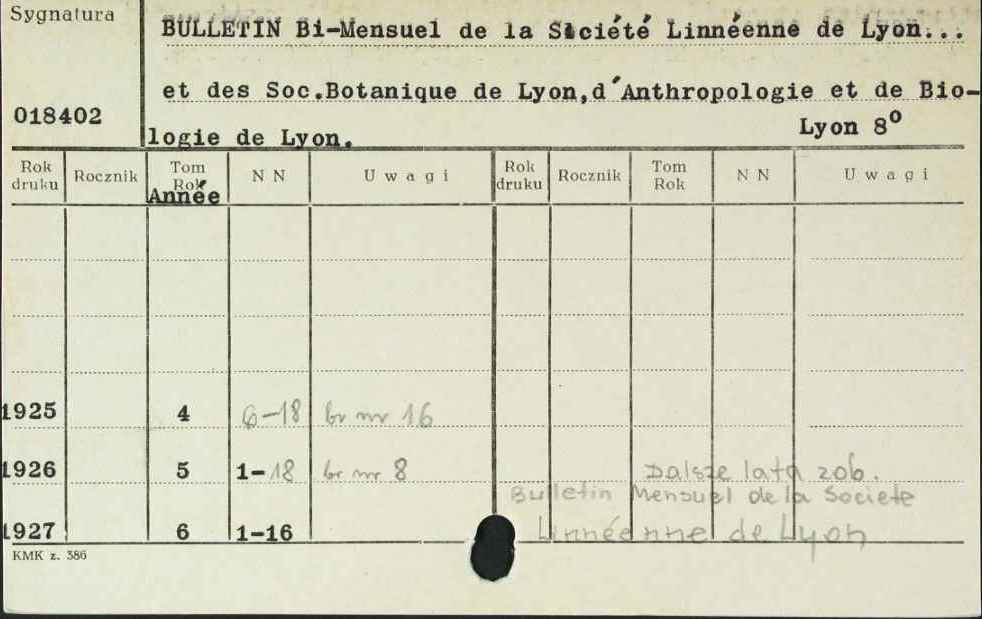 Sygnatura
BULLETIN Bi-Mensuel de la Société Linnéenne de Lyon...
et des Soc.Botanique de Lyon,d'Anthropologie et de Bio-
018402
Lyon 8º
logie de Lyon.
Rok druku Rocznik Tom Rok NN Uwagi Rok druku Rocznik Tom Rok NN Uwagi
Année
1925 4 6-18 br nr 16
1926 5 1-18 br nr 8 Dalsze lata zob.
Bulletin Mensuel de la Societe
1927 6 1-16 Linnéenne de Lyon
KMK z. 386